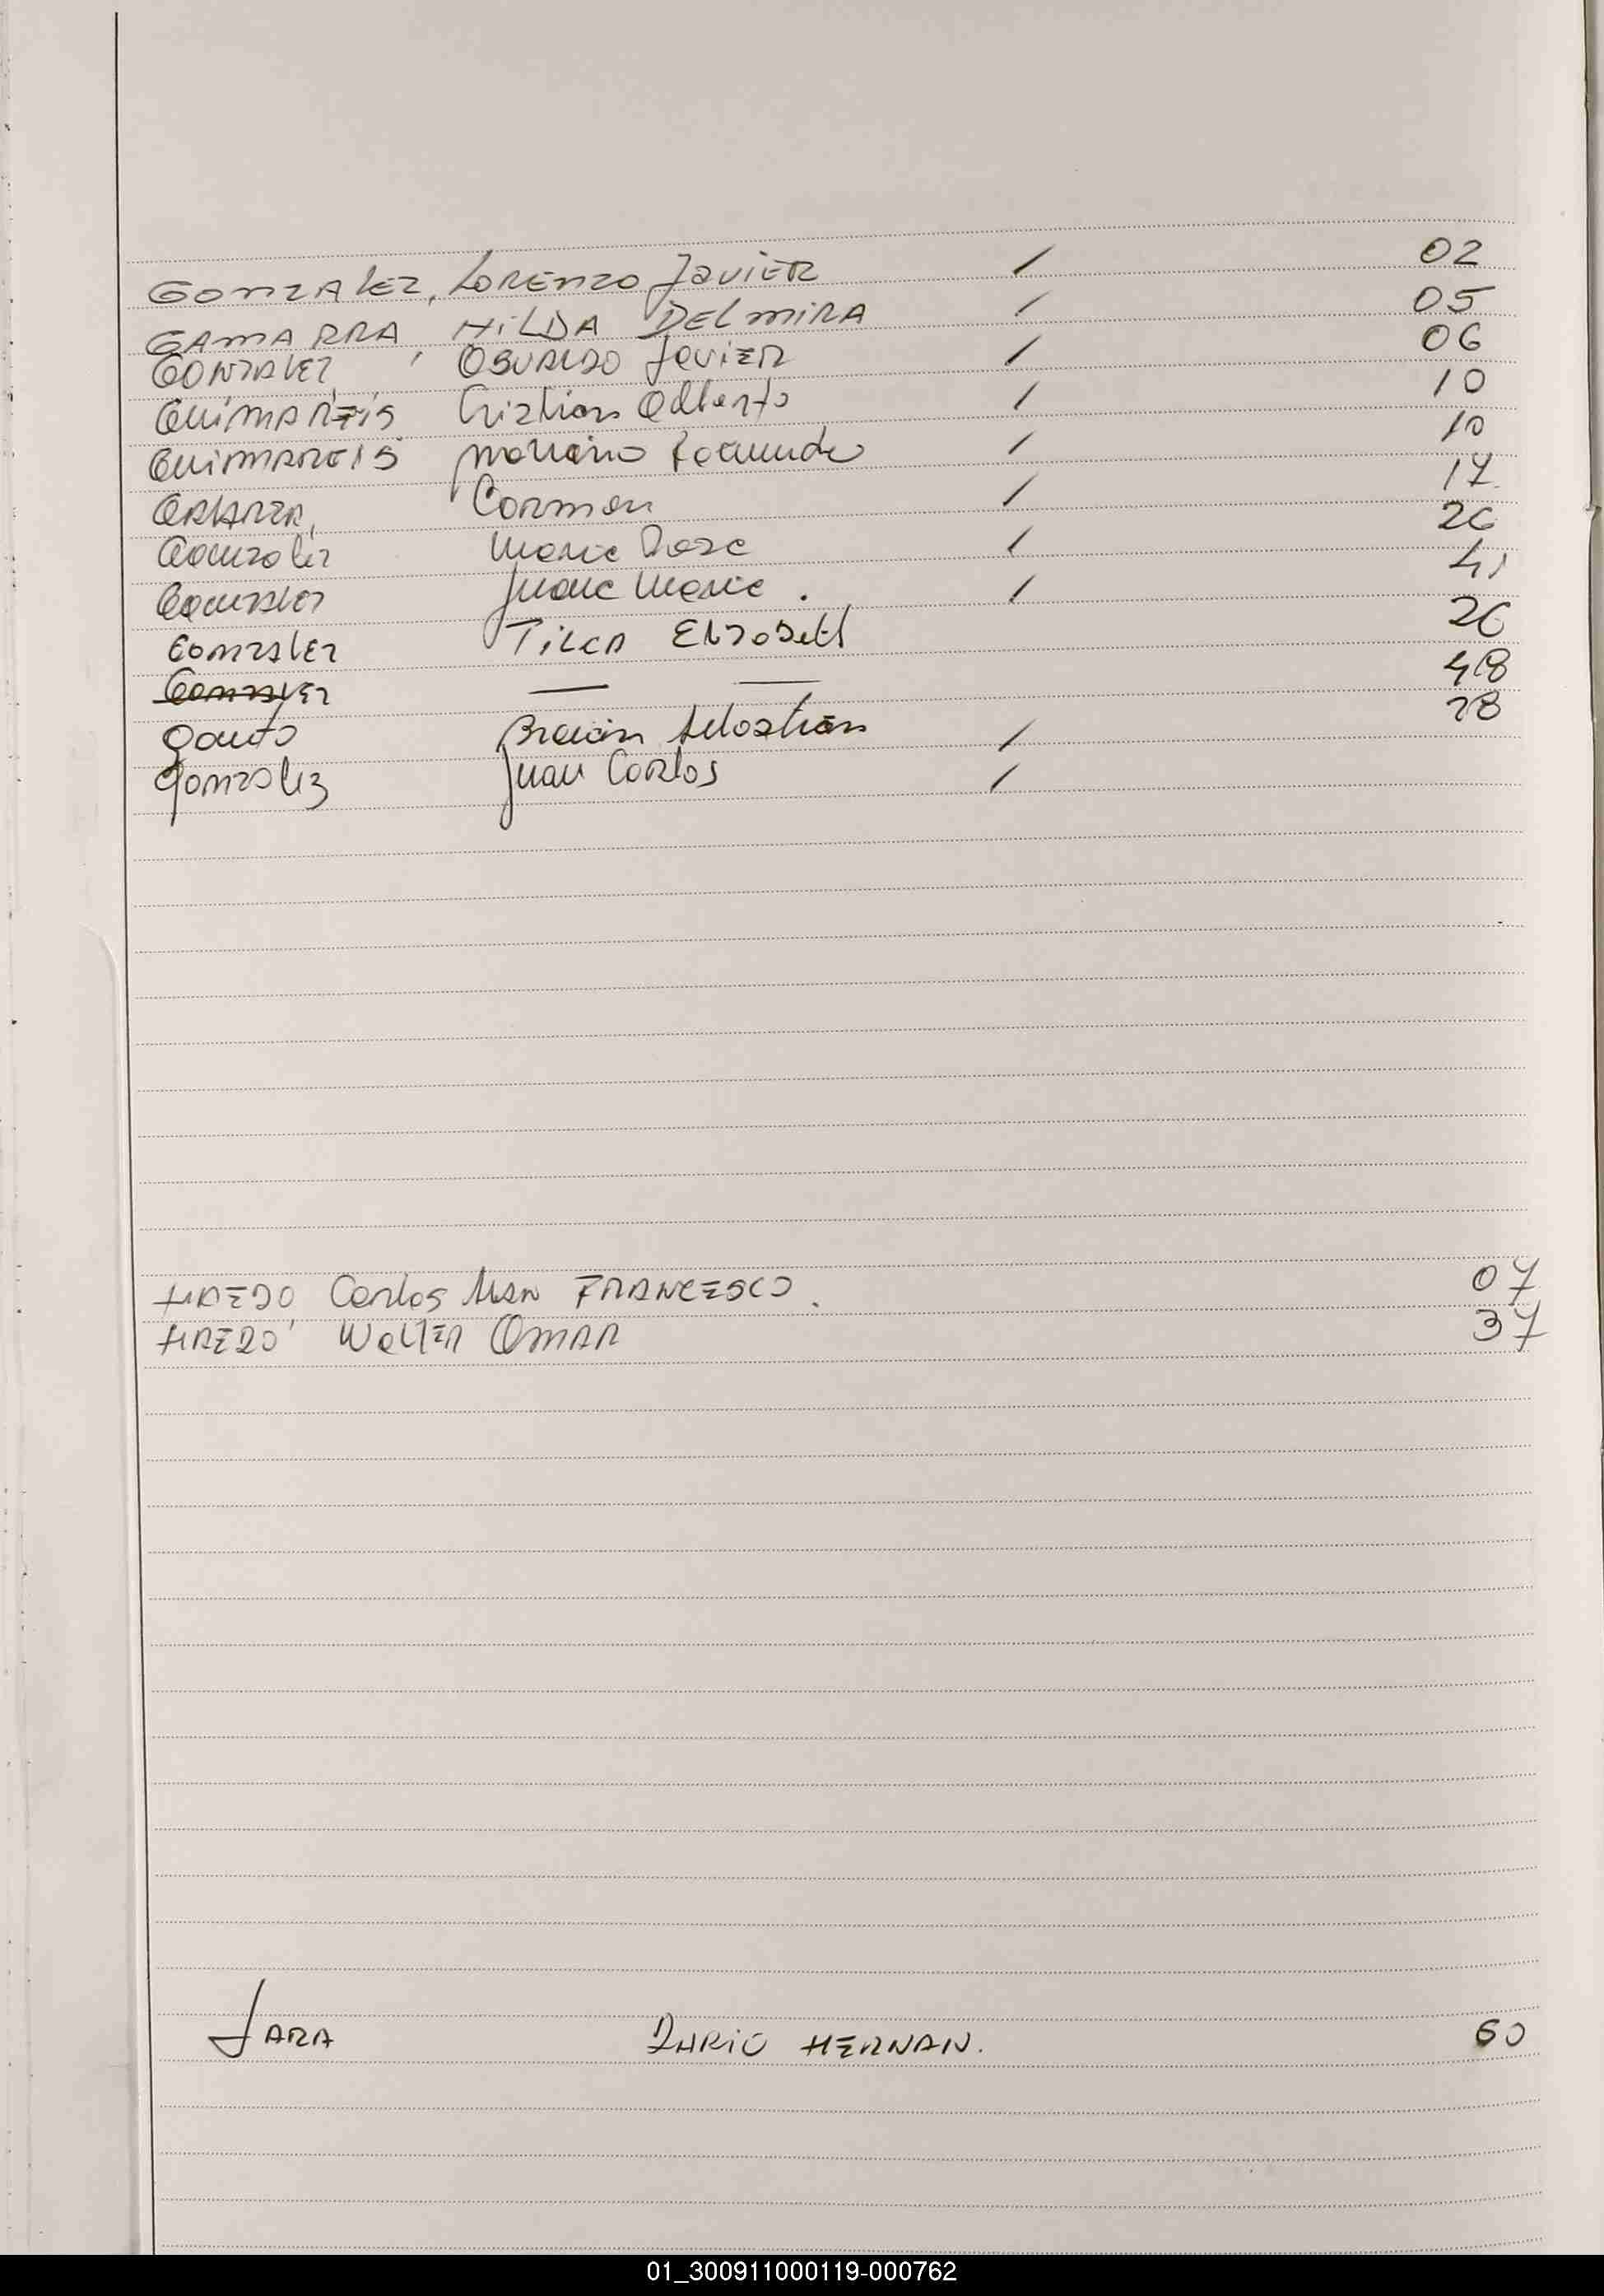 GONZALEZ, LORENZO JAVIER / 02
GAMARRA, HILDA DELMIRA / 05
GONZALEZ, OSVALDO JAVIER / 06
GUIMAREIS Cristian Alberto / 10
GUIMAREIS Mariano Facundo / 10
Carmen / 17
Gonzalez Maria Rosa / 26
Gonzalez Juana Maria . / 41
GONZALEZ Elizabeth 26
GONZALEZ — — 48
Gauto Braian Sebastian / 28
Gonzalez Juan Carlos /
Carlos Alan FRANCESCO. 07
Walter OMAR 37
JARA DARIO HERNAN. 60
01_300911000119-000762